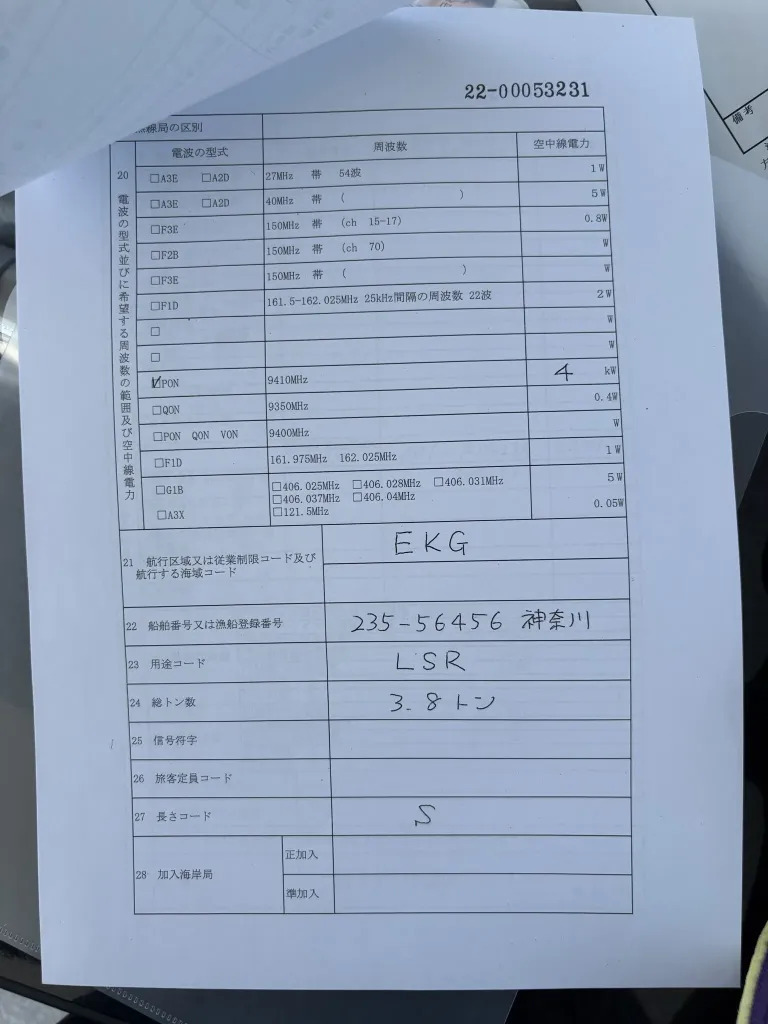 22-00053231
備考
線局の区別
電波の型式 周波数 空中線電力
20 電波の型式並びに希望する周波数の範囲及び空中線電力
□A3E □A2D 27MHz 帯 54波 1W
□A3E □A2D 40MHz 帯 ( ) 5W
□F3E 150MHz 帯 (ch 15-17) 0.8W
□F2B 150MHz 帯 (ch 70) W
□F3E 150MHz 帯 ( ) W
□F1D 161.5-162.025MHz 25kHz間隔の周波数 22波 2W
□ W
□ W
☑PON 9410MHz 4 kW
□QON 9350MHz 0.4W
□PON QON VON 9400MHz W
□F1D 161.975MHz 162.025MHz 1W
□G1B □406.025MHz □406.028MHz □406.031MHz 5W
□406.037MHz □406.04MHz
□A3X □121.5MHz 0.05W
21 航行区域又は従業制限コード及び EKG
航行する海域コード
22 船舶番号又は漁船登録番号 235-56456 神奈川
23 用途コード LSR
24 総トン数 3.8トン
25 信号符字
26 旅客定員コード
27 長さコード S
28 加入海岸局 正加入
準加入